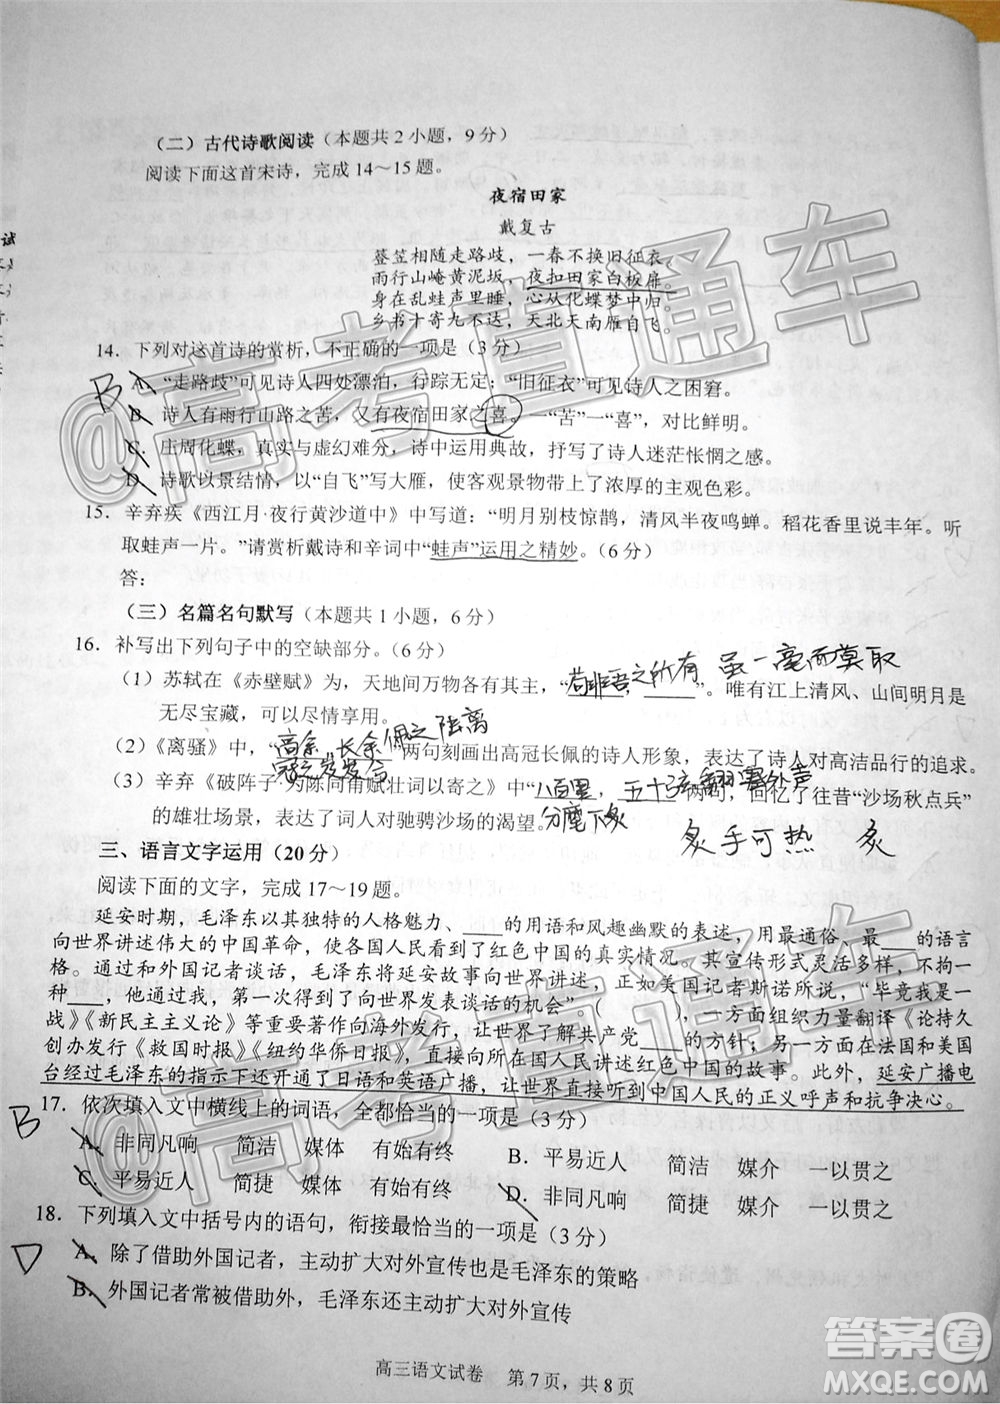 （二）古代诗歌阅读（本题共2小题，9分）
阅读下面这首宋诗，完成14～15题。
夜宿田家
戴复古
簦笠相随走路歧，一春不换旧征衣。
雨行山崦黄泥坂，夜扣田家白板扉。
身在乱蛙声里睡，心从化蝶梦中归。
乡书十寄九不达，天北天南雁自飞。
14．下列对这首诗的赏析，不正确的一项是（3分）
B
A．“走路歧”可见诗人四处漂泊，行踪无定；“旧征衣”可见诗人之困窘。
B．诗人有雨行山路之苦，又有夜宿田家之喜。一“苦”一“喜”，对比鲜明。
C．庄周化蝶，真实与虚幻难分，诗中运用典故，抒写了诗人迷茫怅惘之感。
D．诗歌以景结情，以“自飞”写大雁，使客观景物带上了浓厚的主观色彩。
15．辛弃疾《西江月·夜行黄沙道中》中写道：“明月别枝惊鹊，清风半夜鸣蝉。稻花香里说丰年。听
取蛙声一片。”请赏析戴诗和辛词中“蛙声”运用之精妙。（6分）
答：
（三）名篇名句默写（本题共1小题，6分）
16．补写出下列句子中的空缺部分。（6分）
（1）苏轼在《赤壁赋》为，天地间万物各有其主，“苟非吾之所有 虽一毫而莫取”。唯有江上清风、山间明月是
无尽宝藏，可以尽情享用。
（2）《离骚》中，“高余冠之岌岌兮 长余佩之陆离”两句刻画出高冠长佩的诗人形象，表达了诗人对高洁品行的追求。
（3）辛弃《破阵子·为陈同甫赋壮词以寄之》中“八百里分麾下炙，五十弦翻塞外声”两句，回忆了往昔“沙场秋点兵”
的雄壮场景，表达了词人对驰骋沙场的渴望。
炙手可热 炙
三、语言文字运用（20分）
阅读下面的文字，完成17～19题。
延安时期，毛泽东以其独特的人格魅力、___的用语和风趣幽默的表述，用最通俗、最___的语言
向世界讲述伟大的中国革命，使各国人民看到了红色中国的故事。其宣传形式灵活多样，不拘一
格。通过和外国记者谈话，毛泽东将延安故事向世界讲述，正如美国记者斯诺所说，“毕竟我是一
种___，他通过我，第一次得到了向世界发表谈话的机会”（　　　），一方面组织力量翻译《论持久
战》《新民主主义论》等重要著作向海外发行，让世界了解中国共产党___的方针；另一方面在法国和美国
创办发行《救国时报》《纽约华侨日报》，直接向所在国人民讲述红色中国的故事。此外，延安广播电
台经过毛泽东的指示下还开通了日语和英语广播，让世界直接听到中国人民的正义呼声和抗争决心。
17．依次填入文中横线上的词语，全都恰当的一项是（3分）
B
A．非同凡响　简洁　媒体　有始有终　B．平易近人　简洁　媒介　一以贯之
C．平易近人　简捷　媒体　有始有终　D．非同凡响　简捷　媒介　一以贯之
18．下列填入文中括号内的语句，衔接最恰当的一项是（3分）
D
A．除了借助外国记者，主动扩大对外宣传也是毛泽东的策略
B．外国记者常被借助外，毛泽东还主动扩大对外宣传
高三语文试卷　第7页，共8页
@高考直通车
@高考直通车
答案圈
MXQE.COM